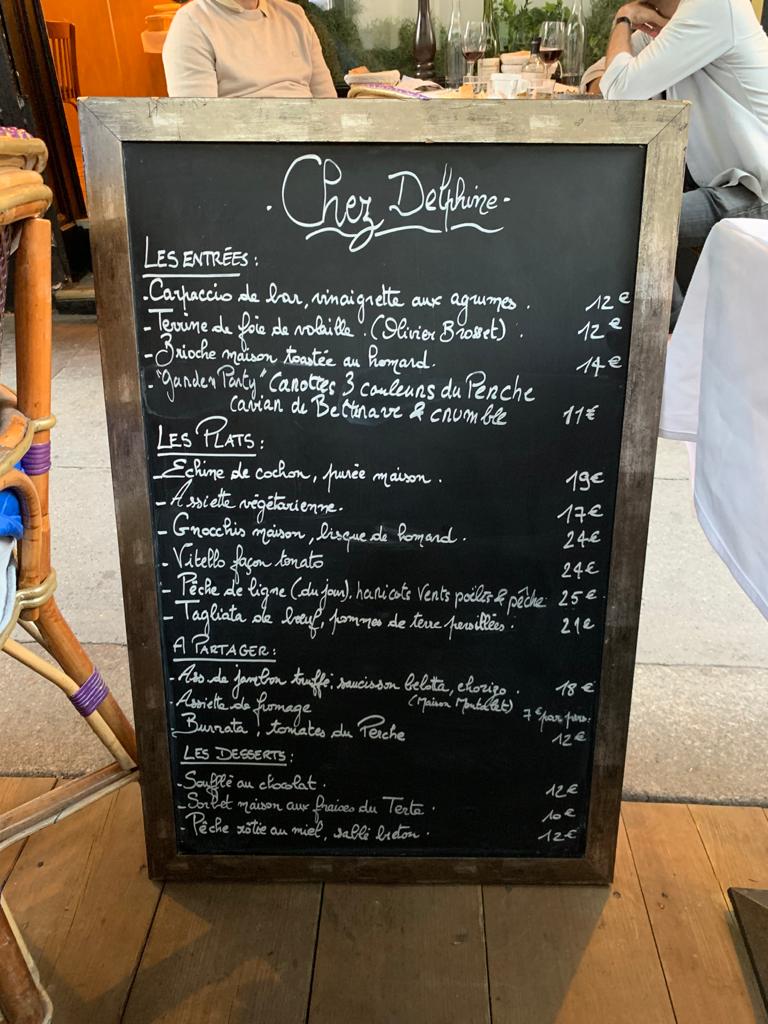 . Chez Delphine -
LES ENTRÉES :
- Carpaccio de bar, vinaigrette aux agrumes . 12 €
- Terrine de foie de volaille . (Olivier Brosset) . 12 €
- Brioche maison toastée au homard. 14 €
- "Garden Party" Carottes 3 couleurs du Perche
caviar de Betterave & crumble 11 €
LES PLATS :
- Echine de cochon, purée maison . 19 €
- Assiette végétarienne. 17 €
- Gnocchis maison, bisque de homard . 24 €
- Vitello façon tonato 24 €
- Pêche de ligne (du jour), haricots verts poêlés & pêche 25 €
- Tagliata de bœuf, pommes de terre persillées . 21 €
A PARTAGER :
- Ass de jambon truffe, saucisson belotta, chorizo . 18 €
(Maison Montalet)
- Assiette de fromage 7 € par pers.
Burrata, tomates du Perche 12 €
LES DESSERTS :
- Soufflé au chocolat . 12 €
- Sorbet maison aux fraises du Terte . 10 €
- Pêche rôtie au miel, sablé breton . 12 €